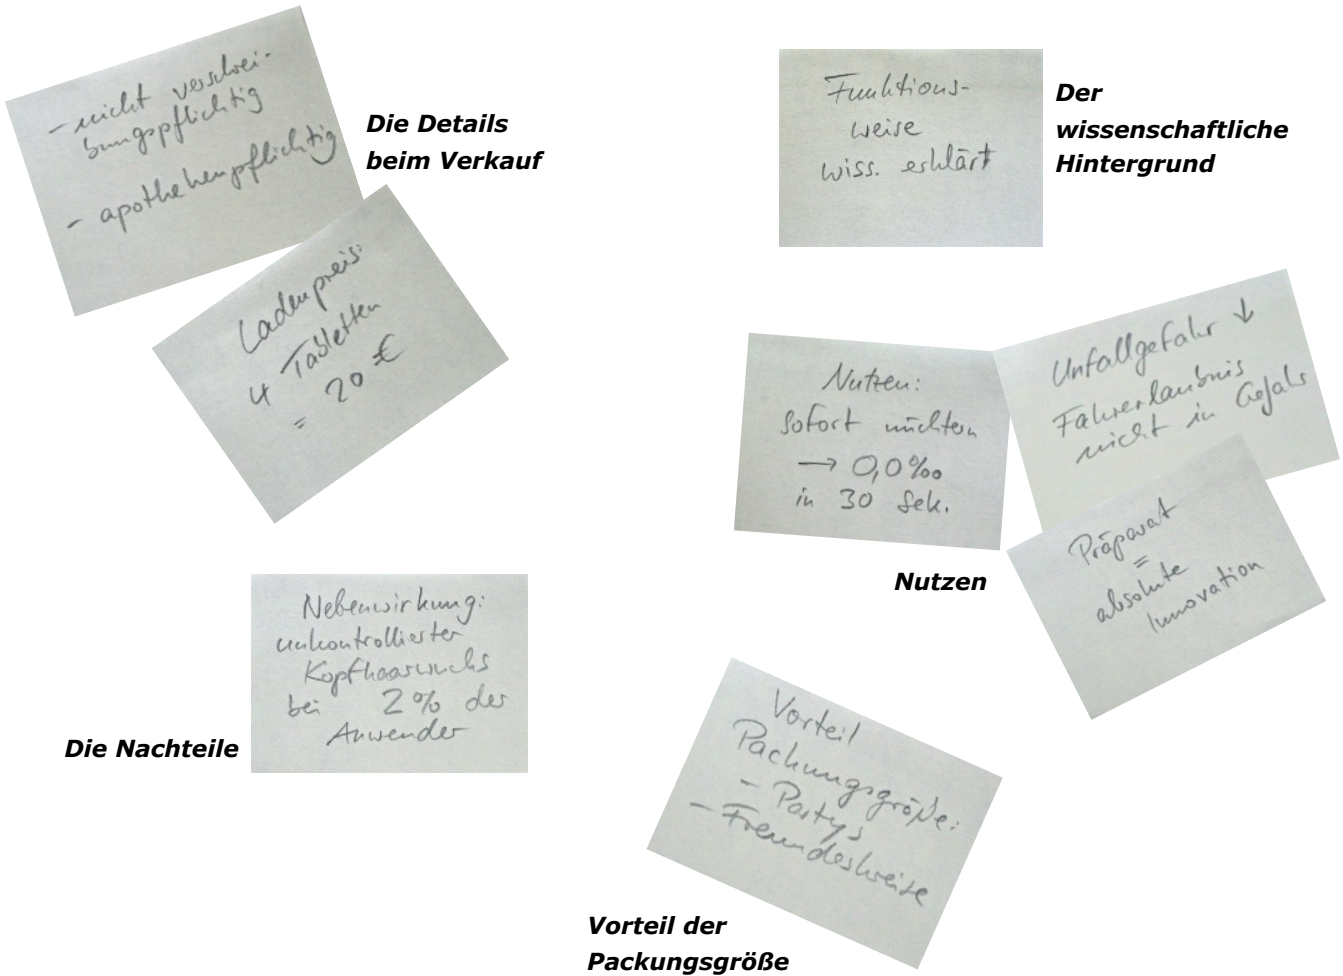 - nicht verschrei-
bungspflichtig
- apothekenpflichtig
Die Details
beim Verkauf
Ladenpreis:
4 Tabletten
= 20 €
Funktions-
weise
wiss. erklärt
Der
wissenschaftliche
Hintergrund
Nutzen:
sofort nüchtern
→ 0,0 ‰
in 30 Sek.
Unfallgefahr ↓
Fahrerlaubnis
nicht in Gefahr
Präparat
=
absolute
Innovation
Nutzen
Nebenwirkung:
unkontrollierter
Kopfhaarwuchs
bei 2% der
Anwender
Die Nachteile
Vorteil
Packungsgröße:
- Partys
- Freundeskreise
Vorteil der
Packungsgröße